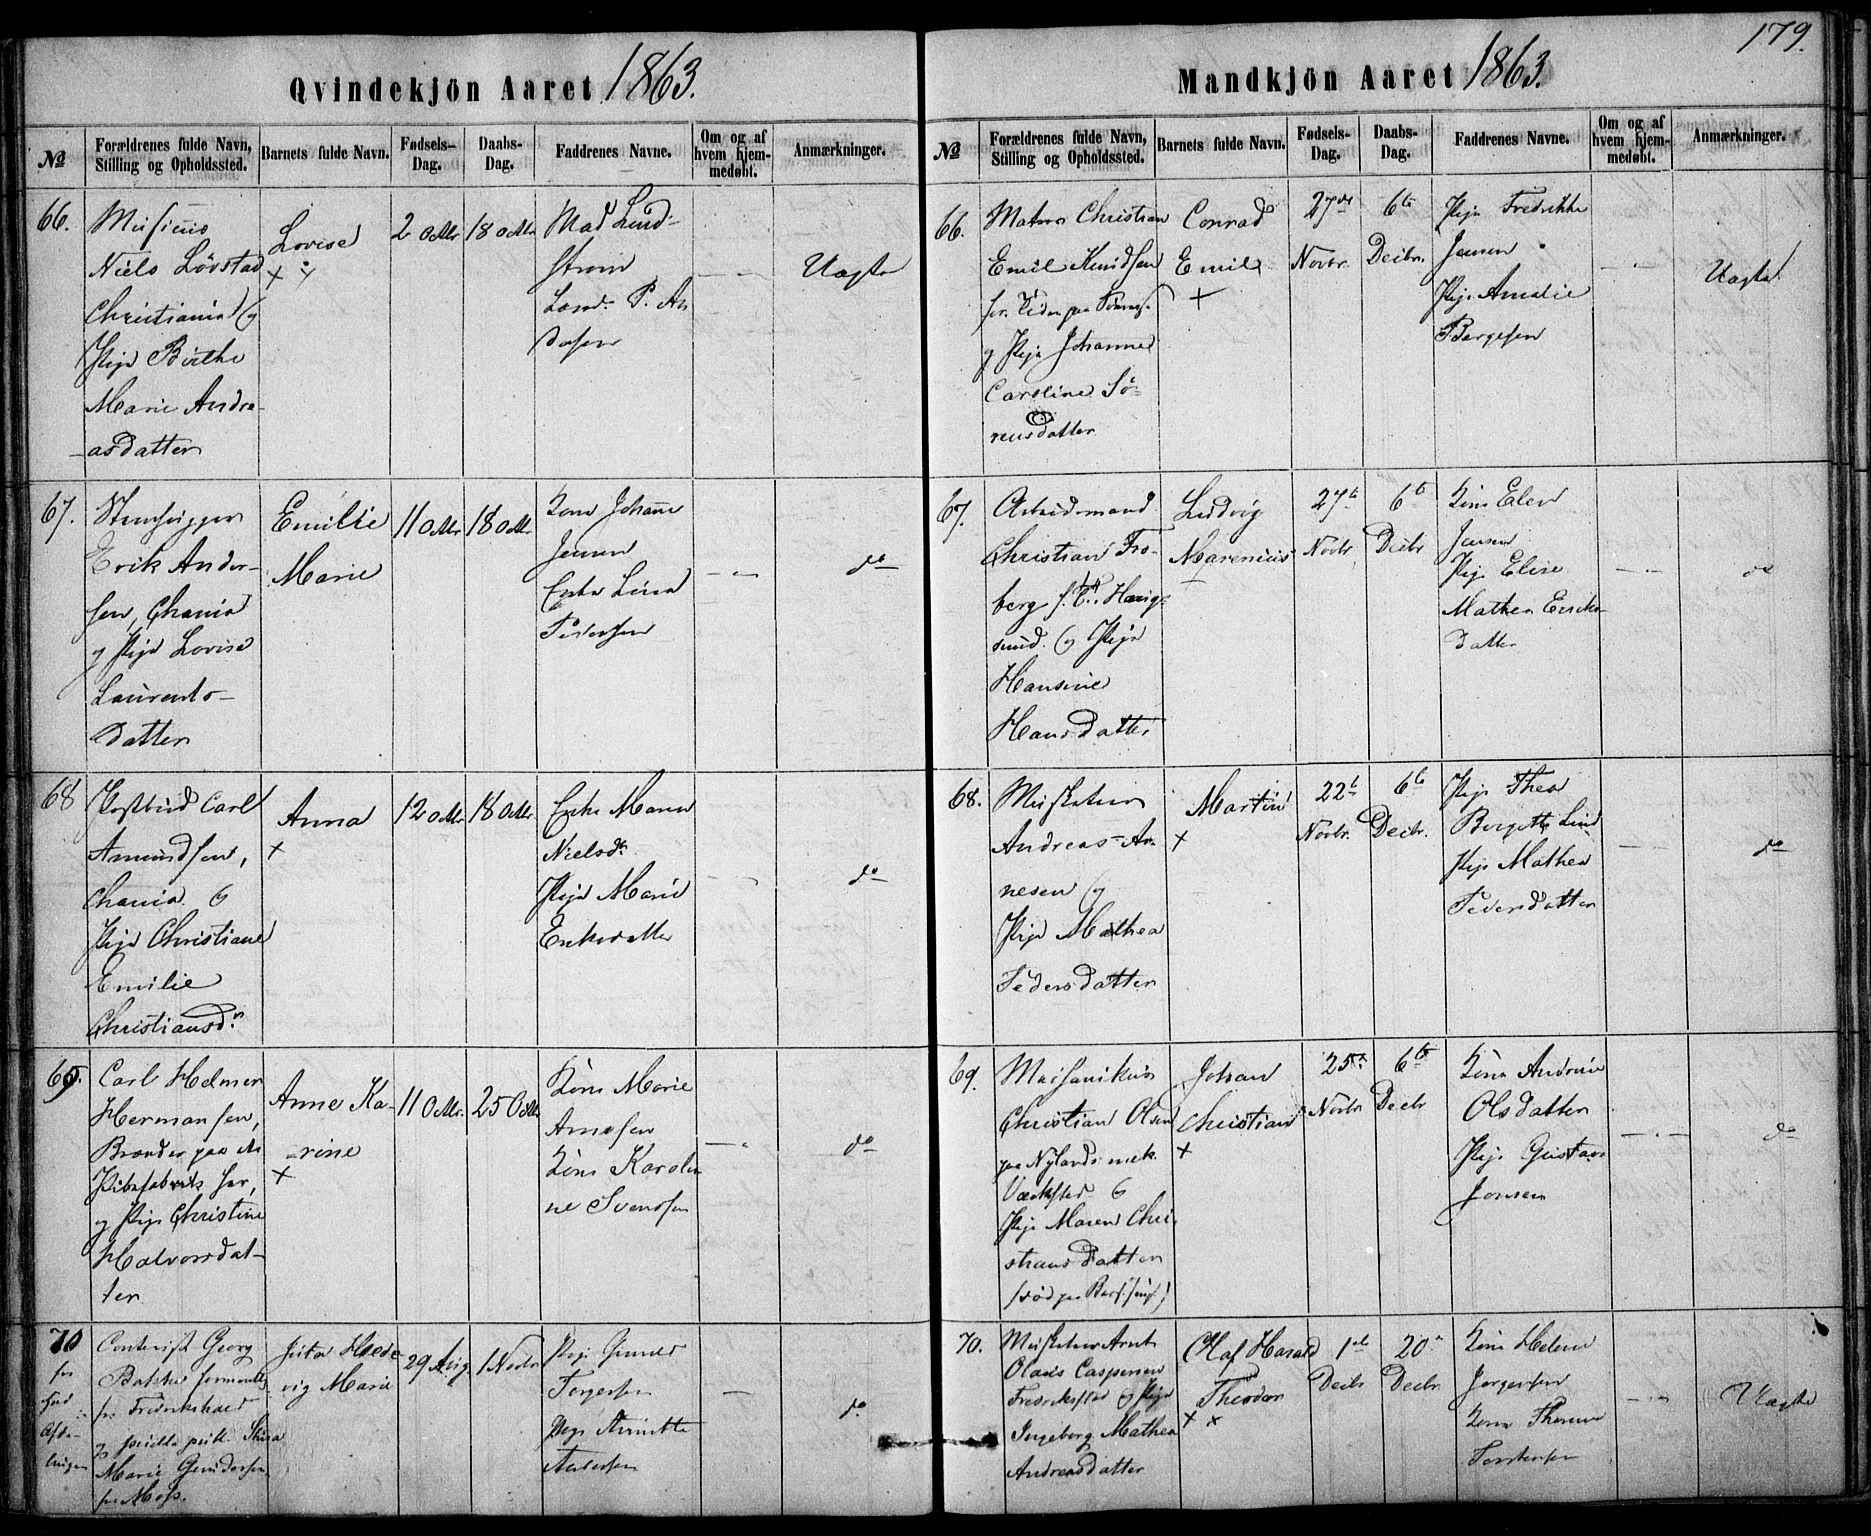 179.
Qvindekjön Aaret 1863.
No
Forældrenes fulde Navn, Stilling og Opholdssted.
Barnets fulde Navn.
Fødsels-Dag.
Daabs-Dag.
Faddrenes Navne.
Om og af hvem hjemmedøbt.
Anmærkninger.
66.
Musicus
Niels Lövstad
Christiania og
Pige Birthe
Marie Andre-
asdatter
Lovise
+
2 Octbr
18 Octbr
Mad Lund-
strøm
Uægte
67.
Erik Ander-
sen, Chania
og Pige Lovise
Laurents-
datter
Emilie
Marie
11 Octbr
18 Octbr
Kone Johanne
Jensen
Enke Lina
Pedersen
do
68
Postbud Carl
Amundsen,
Chania &
Pige Christiane
Emilie
Christiansdr.
Anna
+
12 Octbr
18 Octbr
Enke Maren
Nielsdr.
Pige Marie
Eriksdatter
do
69.
Carl Helmer
Hermansen,
Brænder paa
Pibefabrik her,
og Pige Christine
Halvorsdat-
ter
Anne Ka-
rine
+
11 Octbr.
25 Octbr
Kone Marie
Arnesen
Kone Karoli-
ne Svendsen
do
70
Georg
Bakke
fra Fredrikshald
Marie Gundersen
fra Moss.
Hed-
vig Marie
29 Aug.
1 Novbr
Torgersen
do
Mandkjön Aaret 1863.
No
Forældrenes fulde Navn, Stilling og Opholdssted.
Barnets fulde Navn.
Fødsels-Dag.
Daabs-Dag.
Faddrenes Navne.
Om og af hvem hjemmedøbt.
Anmærkninger.
66.
Matros Christian
Emil Knudsen
og Pige Johanne
Caroline Sö-
rensdatter
Conrad
Emil
+
27de
Novbr.
6te
Decbr.
Pige Fredrikke
Jensen
Pige Amalie
Børgesen
Uægte
67.
Arbeidsmand
Christian Fro-
berg
og Pige
Hansine
Hansdatter
Ludvig
Marenius
27de
Novbr
6te
Decbr
Kone Elen
Jensen
Pige Elise
Mathea Eriks-
datter
do
68.
Musketeer
Andreas Ar-
nesen og
Pige Mathea
Pedersdatter
Martin
+
22de
Novbr.
6te
Decbr.
Pige Thea
Bergette Lind
Pige Mathea
Pedersdatter
do
69.
Christian Olsen
paa Nylands mek.
Værksted &
Pige Maren Chri-
stiansdatter
Johan
Christian
+
25de
Novbr
6te
Decbr
Kone Andrine
Olsdatter
Pige Gustava
Jonsen
do
70.
Musketeer Arnt
Olaus Caspersen
Fredrikstad og Pige
Ingeborg Mathea
Andreasdatter
Olaf Harald
Theodor
+ x
1ste
Decbr
20de
Decbr
Kone Helene
Jørgensen
Kone
Torstensen
Uægte